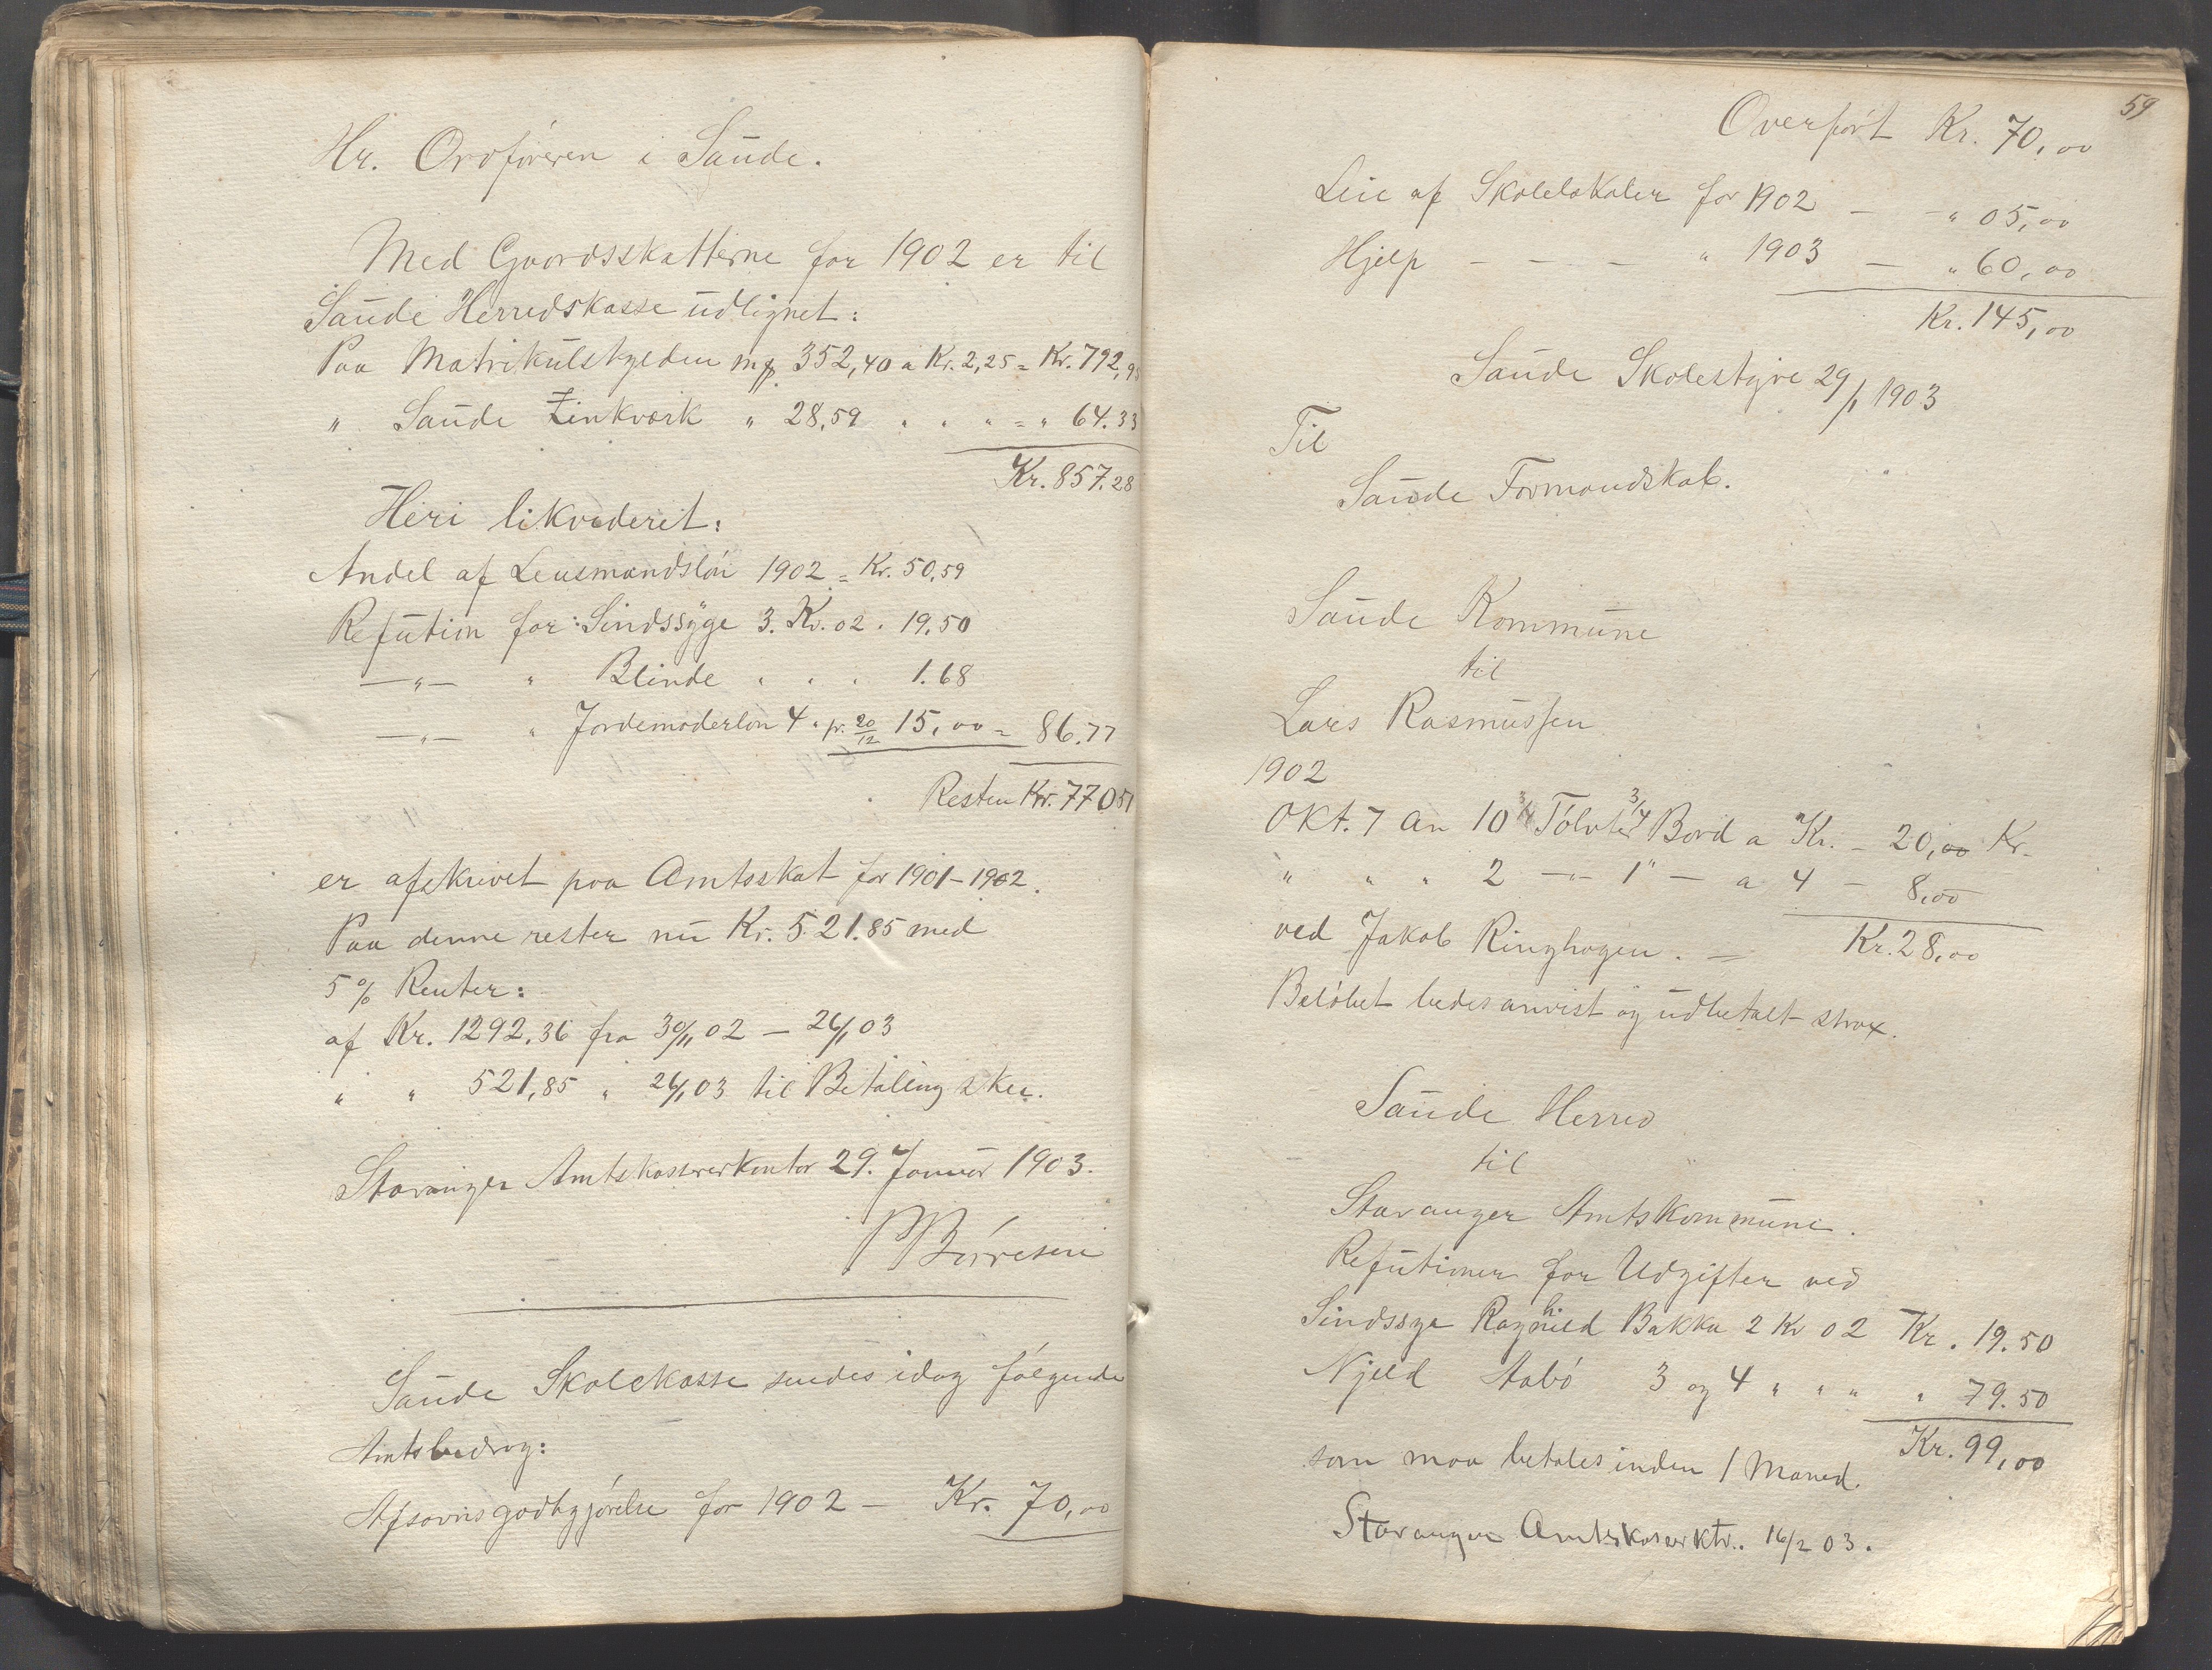 Hr. Ordføreren i Saude.
Med Gaardsskatterne for 1902 er til
Saude Herredskasse udlignet:
Paa Matrikulskylden mp 352,40 a Kr. 2,25 = Kr. 792,95
" Saude Zinkværk " 28,59 " " " = " 64.33
Kr. 857.28
Heri likvideret:
Andel af Lensmandsløn 1902 = Kr. 50,59
Refution for: Sindssyge 3. Kv. 02 . 19.50
—"— " Blinde " " " 1.68
—"— " Jordemoderløn 4 " pr. 20/12 15,00 = 86.77
Resten Kr. 770 51
er afskrevet paa Amtsskat for 1901-1902.
Paa denne rester nu Kr. 521.85 med
5% Renter:
af Kr. 1292.36 fra 30/11 02 — 26/1 03
" " 521,85 " 26/1 03 til Betaling sker.
Stavanger Amtskassererkontor 29. Januar 1903.
Børresen
Saude Skolekasse sendes idag følgende
Amtsbidrag:
Afsavnsgodtgjørelse for 1902 — Kr. 70,00
59
Overført Kr. 70,00
Leie af Skolelokaler for 1902 — — " 05,00
Hjelp — — — " 1903 — " 60,00
Kr. 145,00
Saude Skolestyre 29/1 1903
Til
Saude Formandskab.
Saude Kommune
til
Lars Rasmussen
1902
Okt. 7 An 10 Tolvter 3/4 Bord a Kr. — 20,00 Kr.
" " " 2 —"— 1" — a 4 — 8,00
ved Jakob Ringhagen. — Kr. 28,00
Beløbet bedes anvist og udbetalt strax.
Saude Herred
til
Stavanger Amtskommune.
Refutioner for Udgifter ved
Sindssyge Ragnhild Bakka 2 Kv 02 Kr. 19.50
Njeld Aabø 3 og 4 " " " " 79.50
Kr. 99,00
som maa betales inden 1 Maaned.
Stavanger Amtskasserktr. 16/2 03.